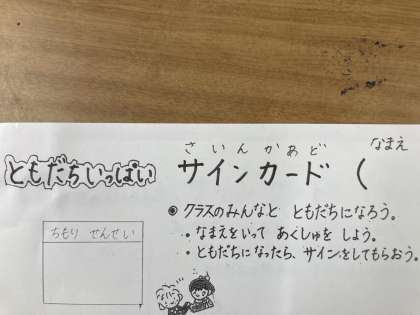 さいんかあど
なまえ
ともだちいっぱい サインカード (
◉ クラスのみんなと ともだちになろう。
・なまえをいって あくしゅを しよう。
・ともだちになったら、サインをしてもらおう。
ちもり せんせい